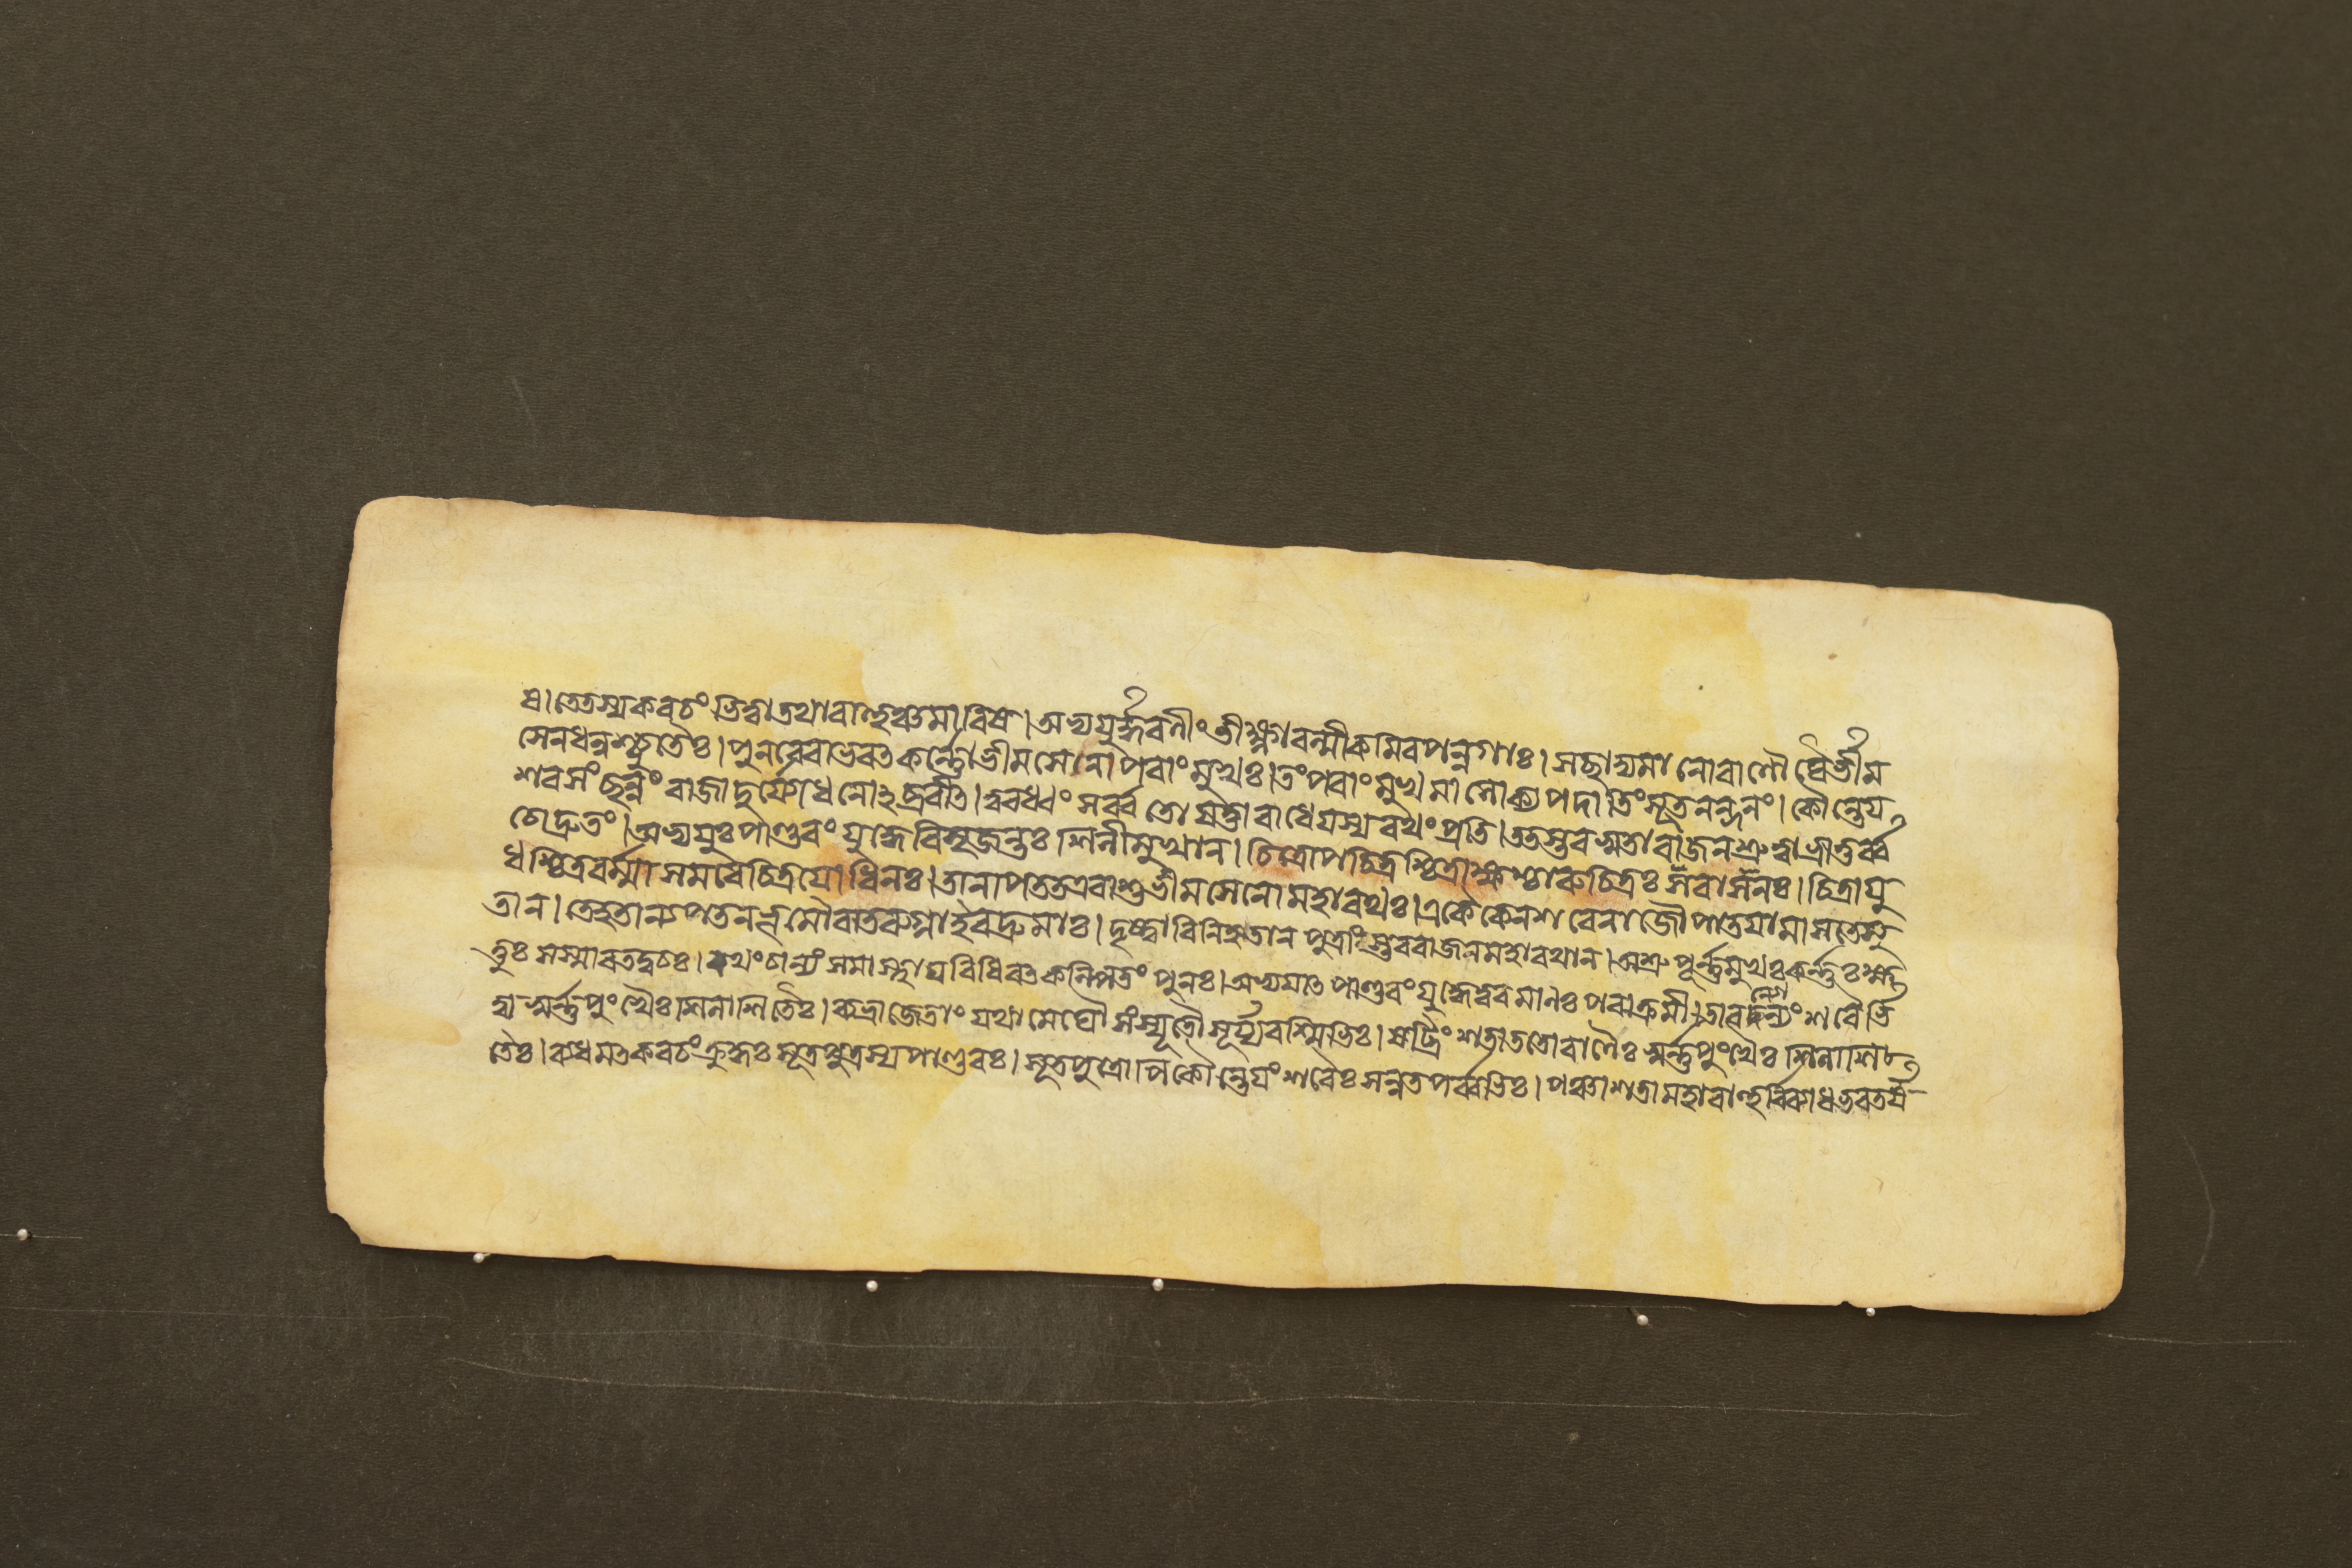 ষ। তেতস্যকবচং ভিত্ত্বা তথাবাহুঞ্চমারিষ। অভ্যযুর্দ্ধরণীং তীক্ষ্ণাবল্মীকমিবপন্নগাঃ। সছাদ্যমানোবাণৌঘৈর্ভীম
সেনধনুশ্চ্যুতৈঃ। পুনরেবাভবৎকর্ণ্ণোভীমসেনাপরাংমুখঃ। তংপরাংমুখমালোক্যপদাতিংসূতনন্দনং। কৌন্তেয
শরসংছন্নং রাজাদুর্য্যোধনোঽব্রবীৎ। ত্বরধ্বং সর্ব্বতো যত্তারাধেযস্যরথংপ্রতি। ততস্তবসুতারাজনশ্রুত্বাভ্রাতুর্ব্ব
চোদ্রুতং। অভ্যযুঃপাণ্ডবং যুদ্ধেবিসৃজন্তঃশিলীমুখান। চিত্রোপচিত্রশ্চিত্রাক্ষশ্চারুচিত্রঃসরাসনঃ। চিত্রাযু
ধশ্চিত্রবর্ম্মাসমরেচিত্রযোধিনঃ। তানাপততএবাশুভীমসেনোমহারথঃ। একৈকেনশরেণাজৌপাতযামাসতেসু
তান। তেহতান্যপতনভূমৌবাতরুগ্নাইবদ্রুমাঃ। দৃষ্ট্বাবিনিহতানপুত্রাংস্তবরাজনমহারথান। অশ্রুপূর্ণ্ণমুখঃকর্ণ্ণঃক্ষ
ত্তুঃসস্মারতদ্বচঃ। রথংচান্যংসমাস্থাযবিধিবৎকল্পিতং পুনঃ। অভ্যযাৎপাণ্ডবংযুদ্ধেত্বরমাণঃপরাক্রমী। তাবন্যোন্যংশরৈর্ভি
ত্ত্বাস্বর্ণ্ণপুংখৈঃশিলাশিতৈঃ। ব্যভ্রাজেতাং যথামেঘৌসংস্যূতৌসূর্য্যরশ্মিভিঃ। ষট্ত্রিংশতাততোবাণৈঃস্বর্ণ্ণপুংখৈঃশিলাশি
তৈঃ। ব্যধমৎকবচংক্রুদ্ধঃসূতপুত্রস্যপাণ্ডবঃ। সূতপুত্রোপিকৌন্তেযংশরৈঃসন্নতপর্ব্বভিঃ। পঞ্চাশতামহাবাহুর্ব্বিব্যাধভরতর্ষ